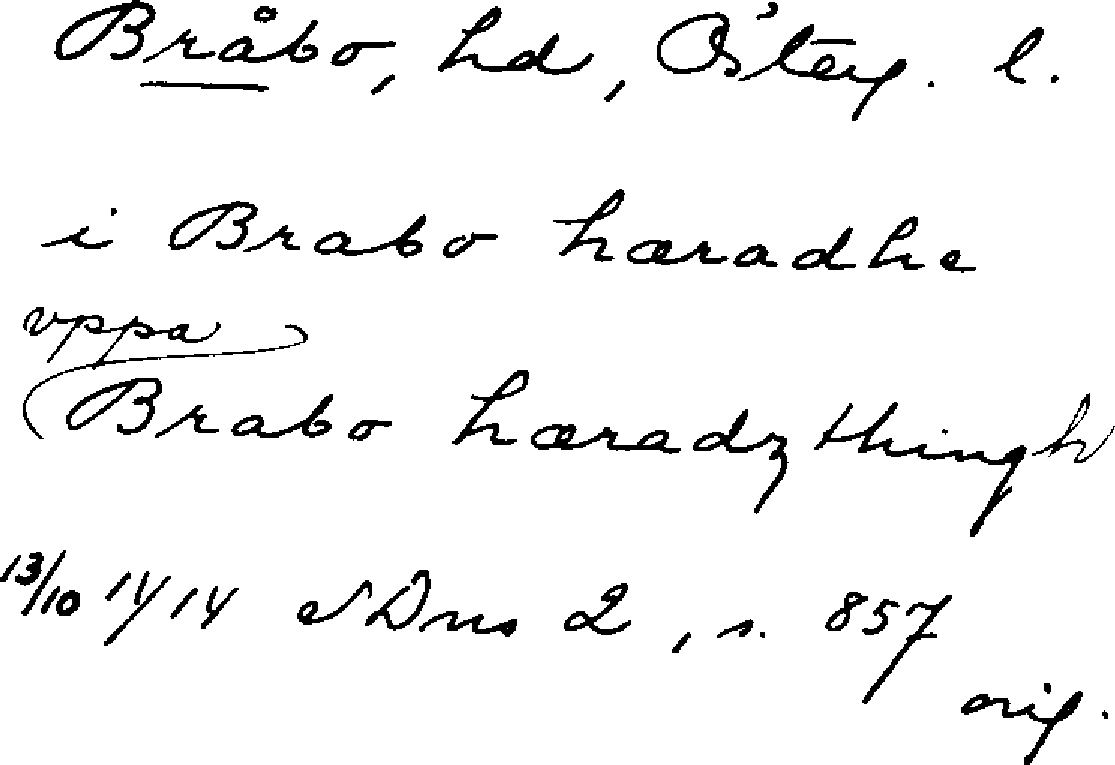 Bråbo, hd, Österg. l.
i Brabo hæradhe
vppa
Brabo hæradz thingh
13/10 1414 SDns 2, s. 857
orig.